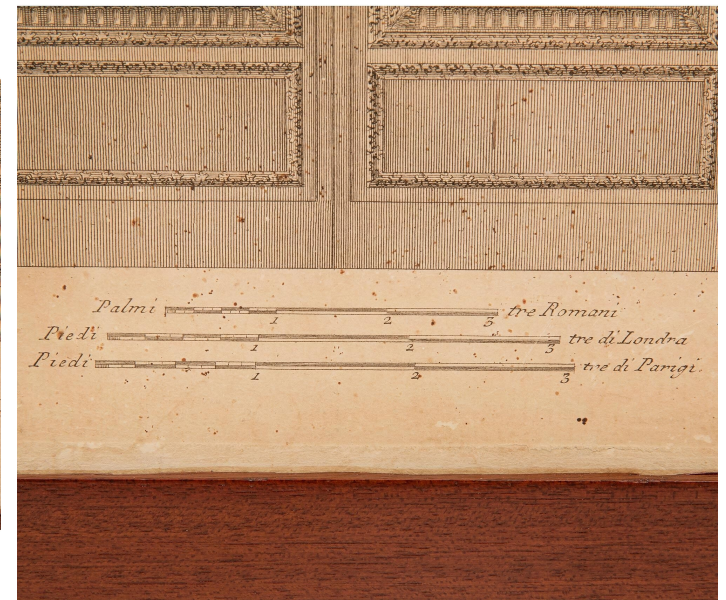 Palmi 1 2 3 tre Romani
Piedi 1 2 3 tre di Londra
Piedi 1 2 3 tre di Parigi.